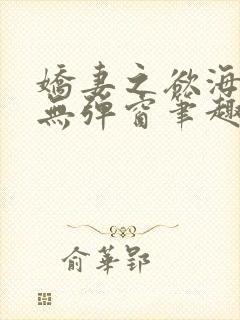 嬌妻之欲海
無彈窗筆趣
俞華郢